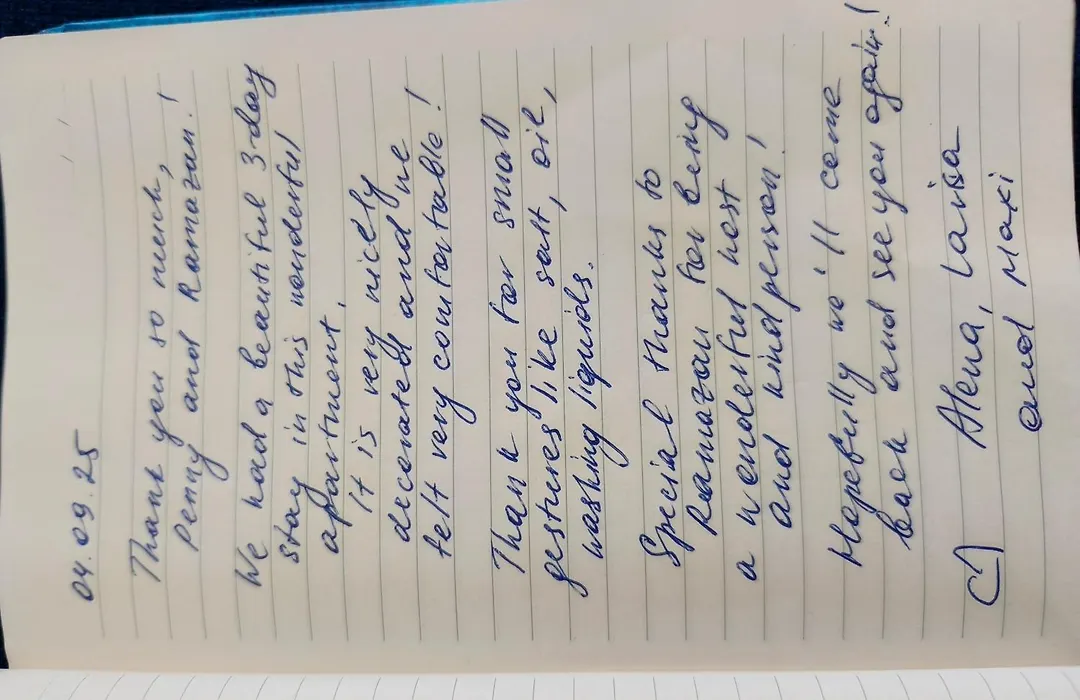 04.09.25
Thank you so much,
Penny and Ramazan!
We had a beautiful 3-day
stay in this wonderful
apartment.
It is very nicely
decorated and we
felt very comfortable!
Thank you for small
gestures like salt, oil,
washing liquids.
Special thanks to
Ramazan for being
a wonderful host
and kind person!
Hopefully we'll come
back and see you again!
Alena, Larisa
and Maxi